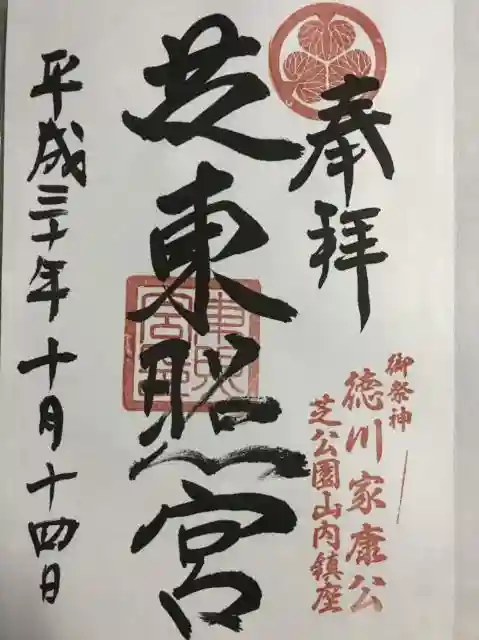 奉拝
御祭神
徳川家康公
芝公園山内鎮座
芝東照宮
平成三十年十月十四日